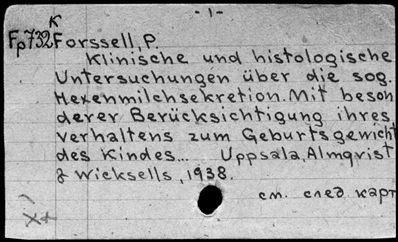 - 1 -
K
Fp732 Forssell, P.
Klinische und histologische
Untersuchungen über die sog.
Hexenmilchsekretion. Mit beson
derer Berücksichtigung ihres
verhaltens zum Geburtsgewicht
des Kindes... Uppsala, Almqvist
& Wicksells, 1938.
см. след. карт